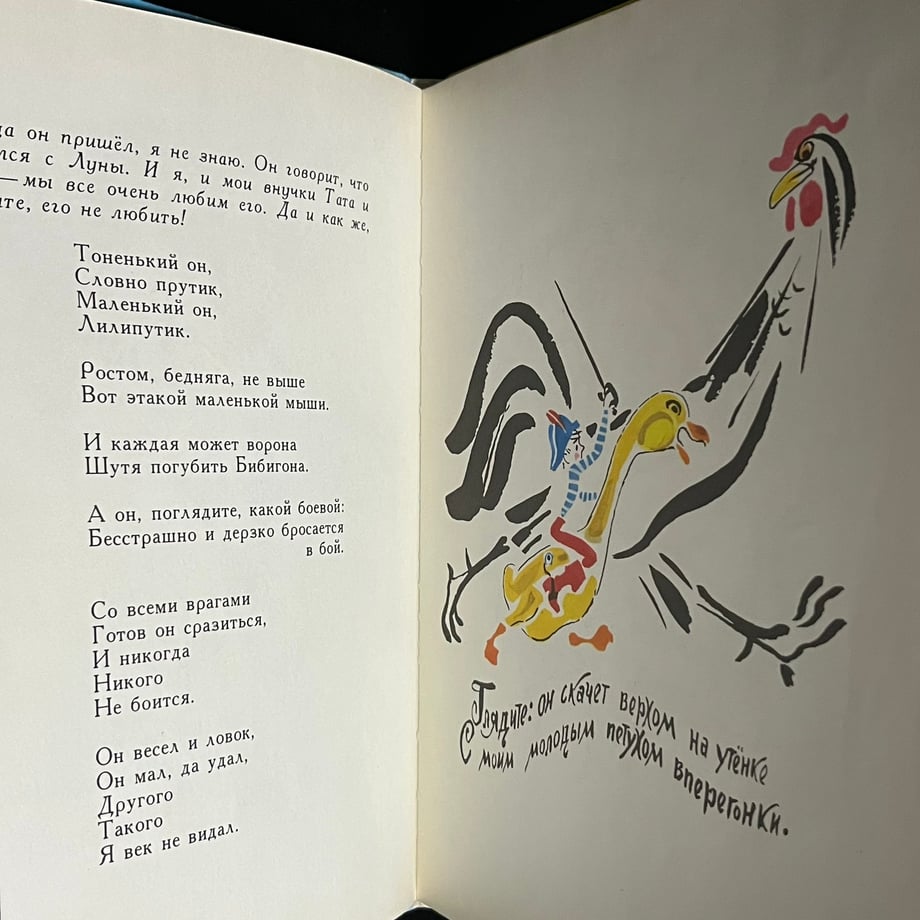 он пришёл, я не знаю. Он говорит, что
с Луны. И я, и мои внучки Тата и
— мы все очень любим его. Да и как же,
его не любить!
Тоненький он,
Словно прутик,
Маленький он,
Лилипутик.
Ростом, бедняга, не выше
Вот этакой маленькой мыши.
И каждая может ворона
Шутя погубить Бибигона.
А он, поглядите, какой боевой:
Бесстрашно и дерзко бросается
в бой.
Со всеми врагами
Готов он сразиться,
И никогда
Никого
Не боится.
Он весел и ловок,
Он мал, да удал,
Другого
Такого
Я век не видал.
Глядите: он скачет верхом на утёнке
С моим молодым петухом вперегонки.